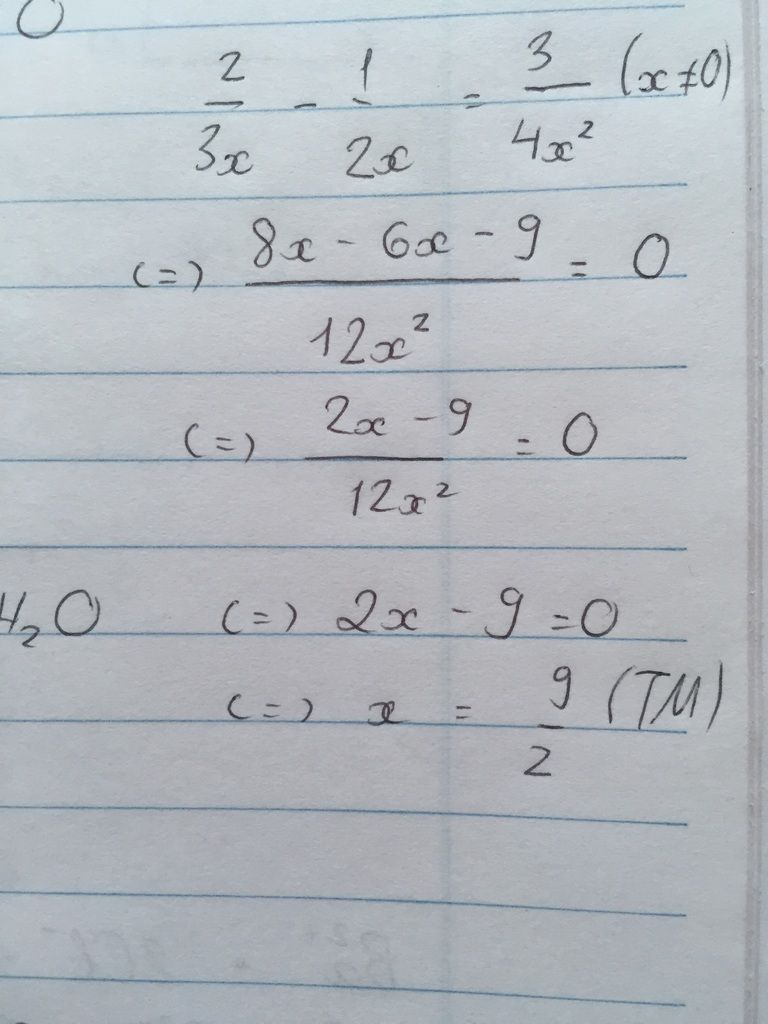 2/3x - 1/2x = 3/4x² (x≠0)
(=) 8x - 6x - 9/12x² = 0
(=) 2x - 9/12x² = 0
H₂O (=) 2x - 9 = 0
(=) x = 9/2 (TM)